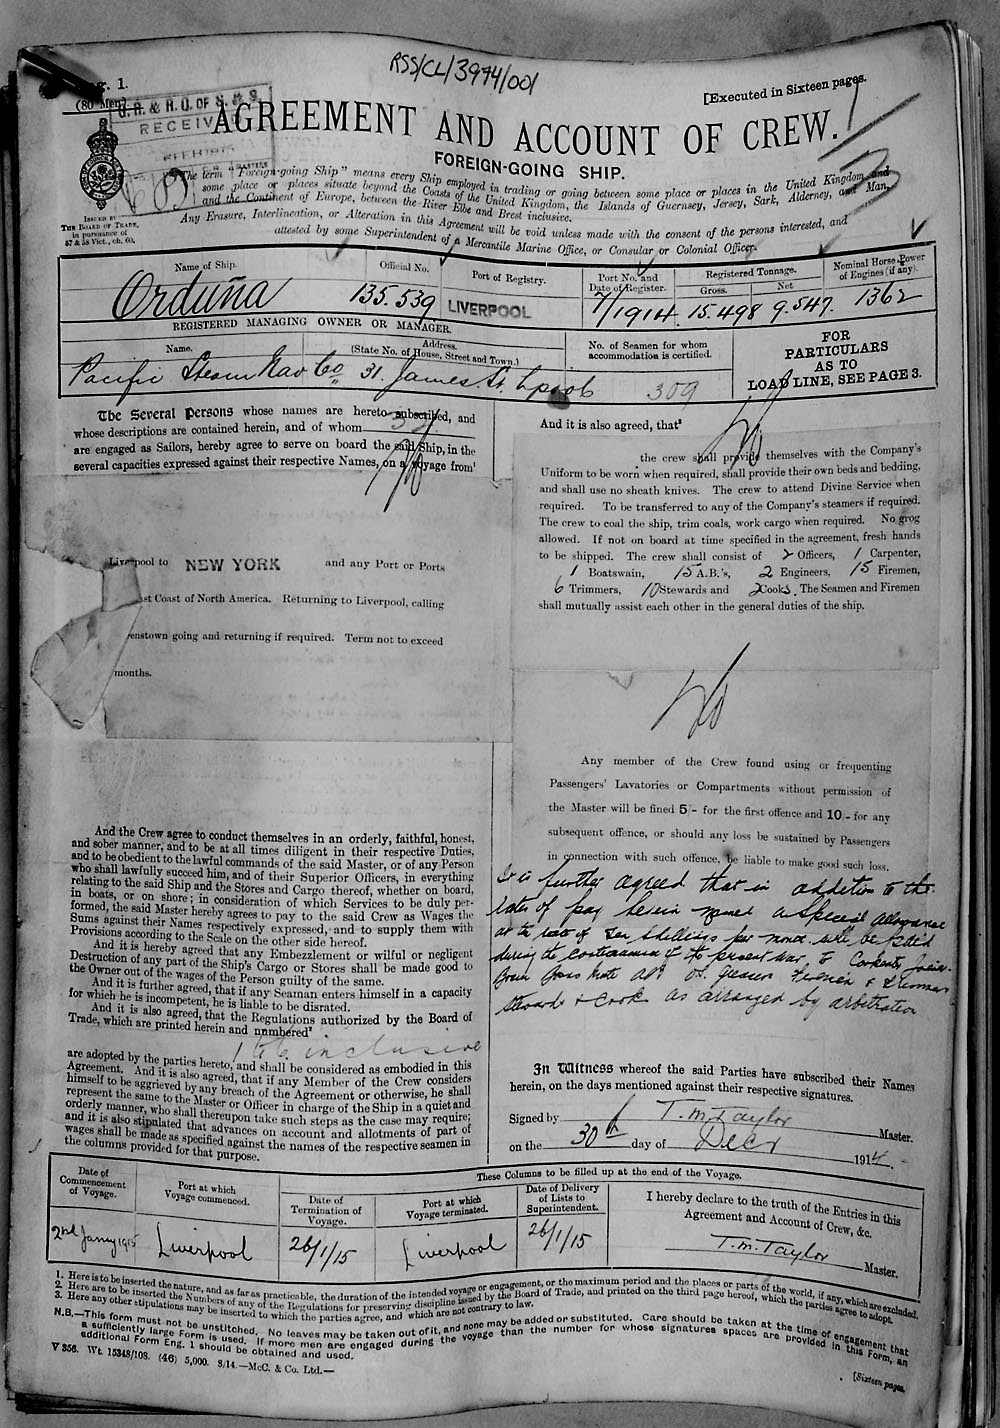 RSS/CL/3974/001
g. 1.
(80 Men)
[Executed in Sixteen pages.
G.R. & R.O. OF S. & S.
RECEIV
AGREEMENT AND ACCOUNT OF CREW.
FOREIGN-GOING SHIP.
ISSUED BY
THE BOARD OF TRADE,
in pursuance of
57 & 58 Vict., ch. 60.
The term "Foreign-going Ship" means every Ship employed in trading or going between some place or places in the United Kingdom and
some place or places situate beyond the Coasts of the United Kingdom, the Islands of Guernsey, Jersey, Sark, Alderney, and Man,
and the Continent of Europe, between the River Elbe and Brest inclusive.
Any Erasure, Interlineation, or Alteration in this Agreement will be void unless made with the consent of the persons interested, and
attested by some Superintendent of a Mercantile Marine Office, or Consular or Colonial Officer.
Name of Ship.
Official No.
Port of Registry.
Port No. and
Date of Register.
Registered Tonnage.
Gross.
Net
Nominal Horse Power
of Engines (if any).
Orduña
135.539
LIVERPOOL
7/1914
15.498
9.547.
1362
REGISTERED MANAGING OWNER OR MANAGER.
Name.
Address.
(State No. of House, Street and Town.)
No. of Seamen for whom
accommodation is certified.
FOR
PARTICULARS
AS TO
LOAD LINE, SEE PAGE 3.
Pacific Steam Nav Co
31. James St. Lpool
309
The Several Persons whose names are hereto subscribed, and
whose descriptions are contained herein, and of whom
are engaged as Sailors, hereby agree to serve on board the said Ship, in the
several capacities expressed against their respective Names, on a Voyage from¹
Liverpool to NEW YORK and any Port or Ports
st Coast of North America. Returning to Liverpool, calling
enstown going and returning if required. Term not to exceed
months.
And the Crew agree to conduct themselves in an orderly, faithful, honest,
and sober manner, and to be at all times diligent in their respective Duties,
and to be obedient to the lawful commands of the said Master, or of any Person
who shall lawfully succeed him, and of their Superior Officers, in everything
relating to the said Ship and the Stores and Cargo thereof, whether on board,
in boats, or on shore; in consideration of which Services to be duly per-
formed, the said Master hereby agrees to pay to the said Crew as Wages the
Sums against their Names respectively expressed, and to supply them with
Provisions according to the Scale on the other side hereof.
And it is hereby agreed that any Embezzlement or wilful or negligent
Destruction of any part of the Ship's Cargo or Stores shall be made good to
the Owner out of the wages of the Person guilty of the same.
And it is further agreed, that if any Seaman enters himself in a capacity
for which he is incompetent, he is liable to be disrated.
And it is also agreed, that the Regulations authorized by the Board of
Trade, which are printed herein and numbered²
1 to 6 inclusive
are adopted by the parties hereto, and shall be considered as embodied in this
Agreement. And it is also agreed, that if any Member of the Crew considers
himself to be aggrieved by any breach of the Agreement or otherwise, he shall
represent the same to the Master or Officer in charge of the Ship in a quiet and
orderly manner, who shall thereupon take such steps as the case may require;
and it is also stipulated that advances on account and allotments of part of
wages shall be made as specified against the names of the respective seamen in
the columns provided for that purpose.
And it is also agreed, that³
the crew shall provide themselves with the Company's
Uniform to be worn when required, shall provide their own beds and bedding,
and shall use no sheath knives. The crew to attend Divine Service when
required. To be transferred to any of the Company's steamers if required.
The crew to coal the ship, trim coals, work cargo when required. No grog
allowed. If not on board at time specified in the agreement, fresh hands
to be shipped. The crew shall consist of 2 Officers, 1 Carpenter,
1 Boatswain, 15 A.B.'s, 2 Engineers, 15 Firemen,
6 Trimmers, 10 Stewards and 2 Cooks. The Seamen and Firemen
shall mutually assist each other in the general duties of the ship.
Any member of the Crew found using or frequenting
Passengers' Lavatories or Compartments without permission of
the Master will be fined 5/- for the first offence and 10/- for any
subsequent offence, or should any loss be sustained by Passengers
in connection with such offence, be liable to make good such loss.
It is further agreed that in addition to the
rates of pay herein named a special allowance
at the rate of Ten Shillings per month will be paid
during the continuance of the present War, to
Firemen &
Stewards & Cooks as arranged by arbitration
In Witness whereof the said Parties have subscribed their Names
herein, on the days mentioned against their respective signatures.
Signed by T. M. Taylor Master.
on the 30th day of Decr 1914.
These Columns to be filled up at the end of the Voyage.
Date of
Commencement
of Voyage.
Port at which
Voyage commenced.
Date of
Termination of
Voyage.
Port at which
Voyage terminated.
Date of Delivery
of Lists to
Superintendent.
I hereby declare to the truth of the Entries in this
Agreement and Account of Crew, &c.
2nd Jany 1915
Liverpool
26/1/15
Liverpool
26/1/15
T. M. Taylor Master.
1. Here is to be inserted the nature, and as far as practicable, the duration of the intended voyage or engagement, or the maximum period and the places or parts of the world, if any, which are excluded.
2. Here are to be inserted the Numbers of any of the Regulations for preserving discipline issued by the Board of Trade, and printed on the third page hereof, which the parties agree to adopt.
3. Here any other stipulations may be inserted to which the parties agree, and which are not contrary to law.
N.B.—This form must not be unstitched. No leaves may be taken out of it, and none may be added or substituted. Care should be taken at the time of engagement that
a sufficiently large Form is used. If more men are engaged during the voyage than the number for whose signatures spaces are provided in this Form, an
additional Form Eng. 1 should be obtained and used.
V 356. Wt. 15348/108. (46) 5,000. 8/14.—McC. & Co. Ltd.—
[Sixteen pages.